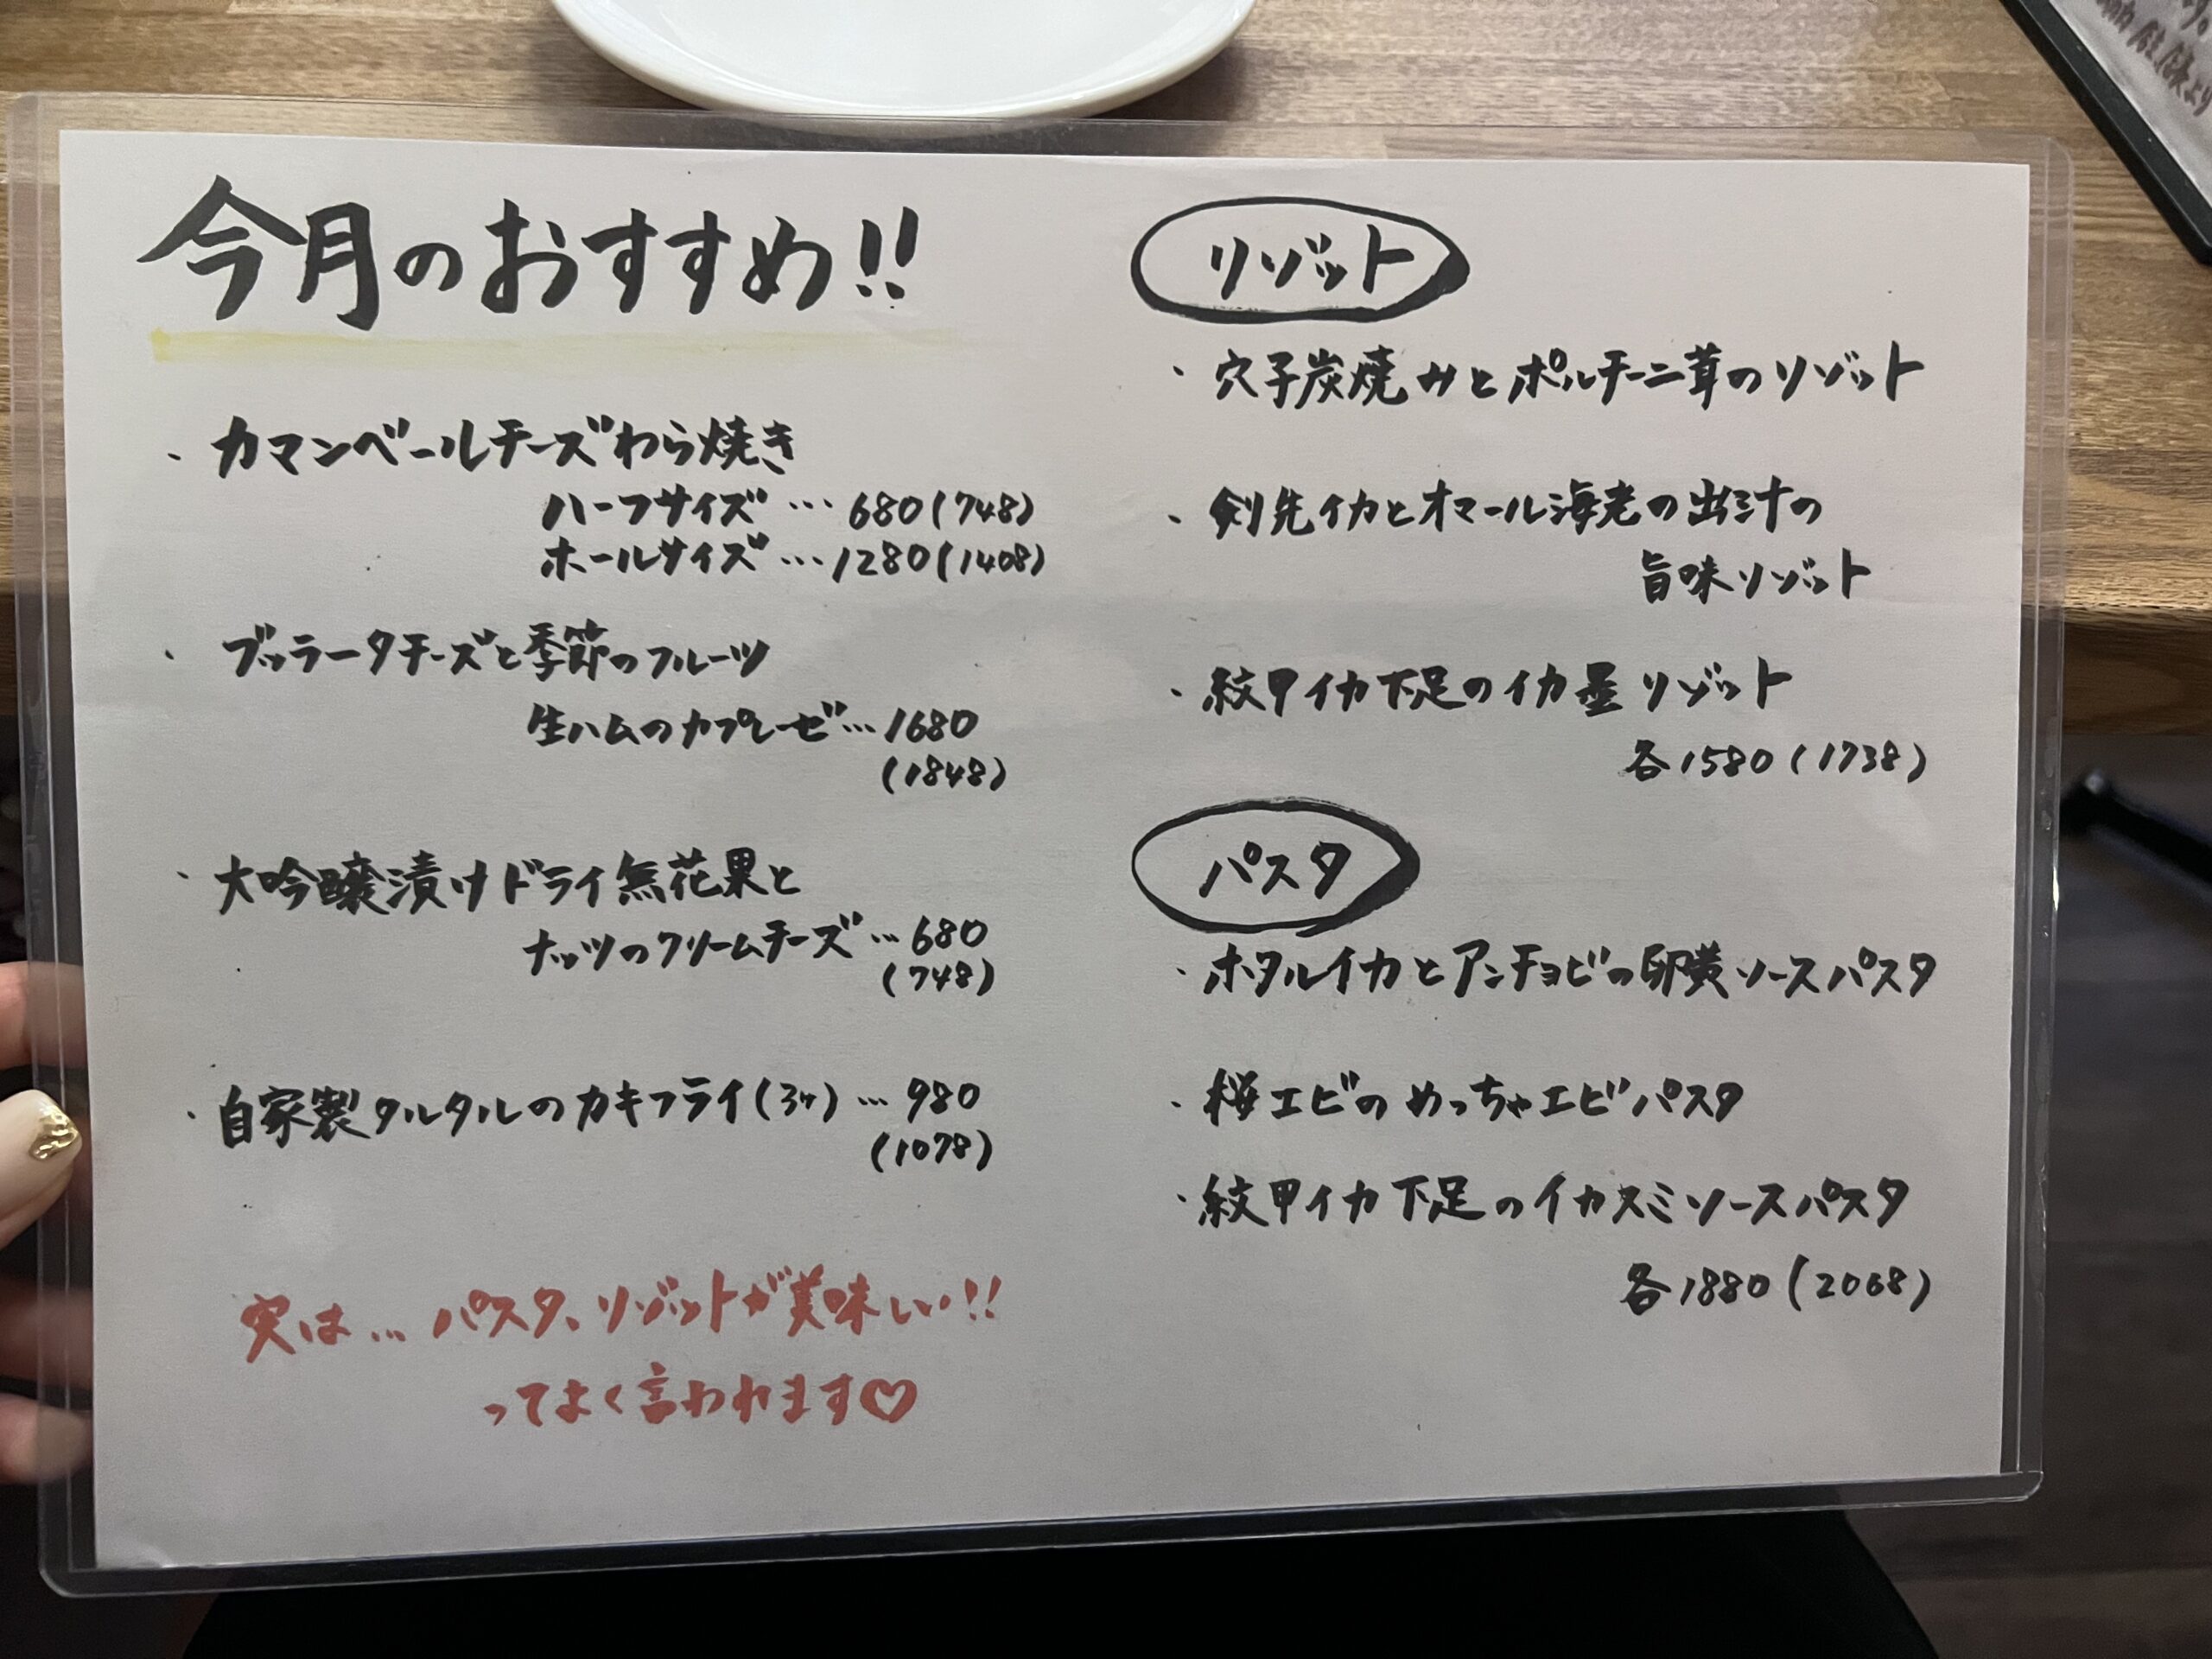 今月のおすすめ!!
・カマンベールチーズわら焼き
ハーフサイズ…680(748)
ホールサイズ…1280(1408)
・ブッラータチーズと季節のフルーツ
生ハムのカプレーゼ…1680
(1848)
・大吟醸漬けドライ無花果と
ナッツのクリームチーズ…680
(748)
・自家製タルタルのカキフライ(3ヶ)…980
(1078)
実は…パスタ、リゾットが美味しい!!
ってよく言われます♡
リゾット
・穴子炭焼みとポルチーニ茸のリゾット
・剣先イカとオマール海老の出汁の
旨味リゾット
・紋甲イカ下足のイカ墨リゾット
各1580(1738)
パスタ
・ホタルイカとアンチョビの卵黄ソースパスタ
・桜エビのめっちゃエビパスタ
・紋甲イカ下足のイカスミソースパスタ
各1880(2068)